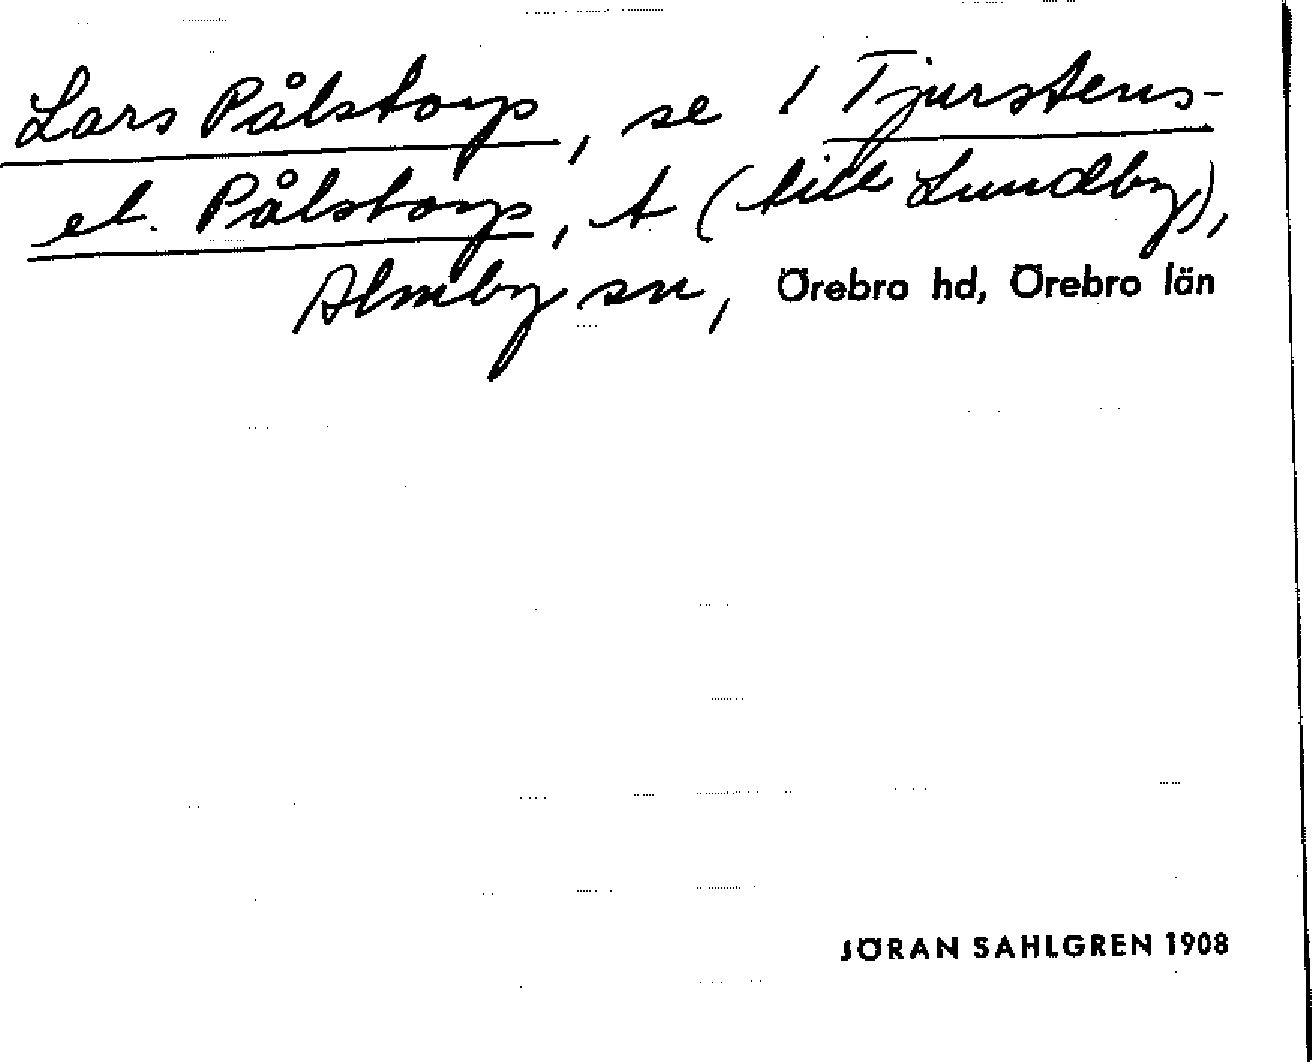 Lars Pålstorp, se 1 Tjurstens-
el. Pålstorp, t (till Lundby),
Almby sn, Örebro hd, Örebro län
JÖRAN SAHLGREN 1908